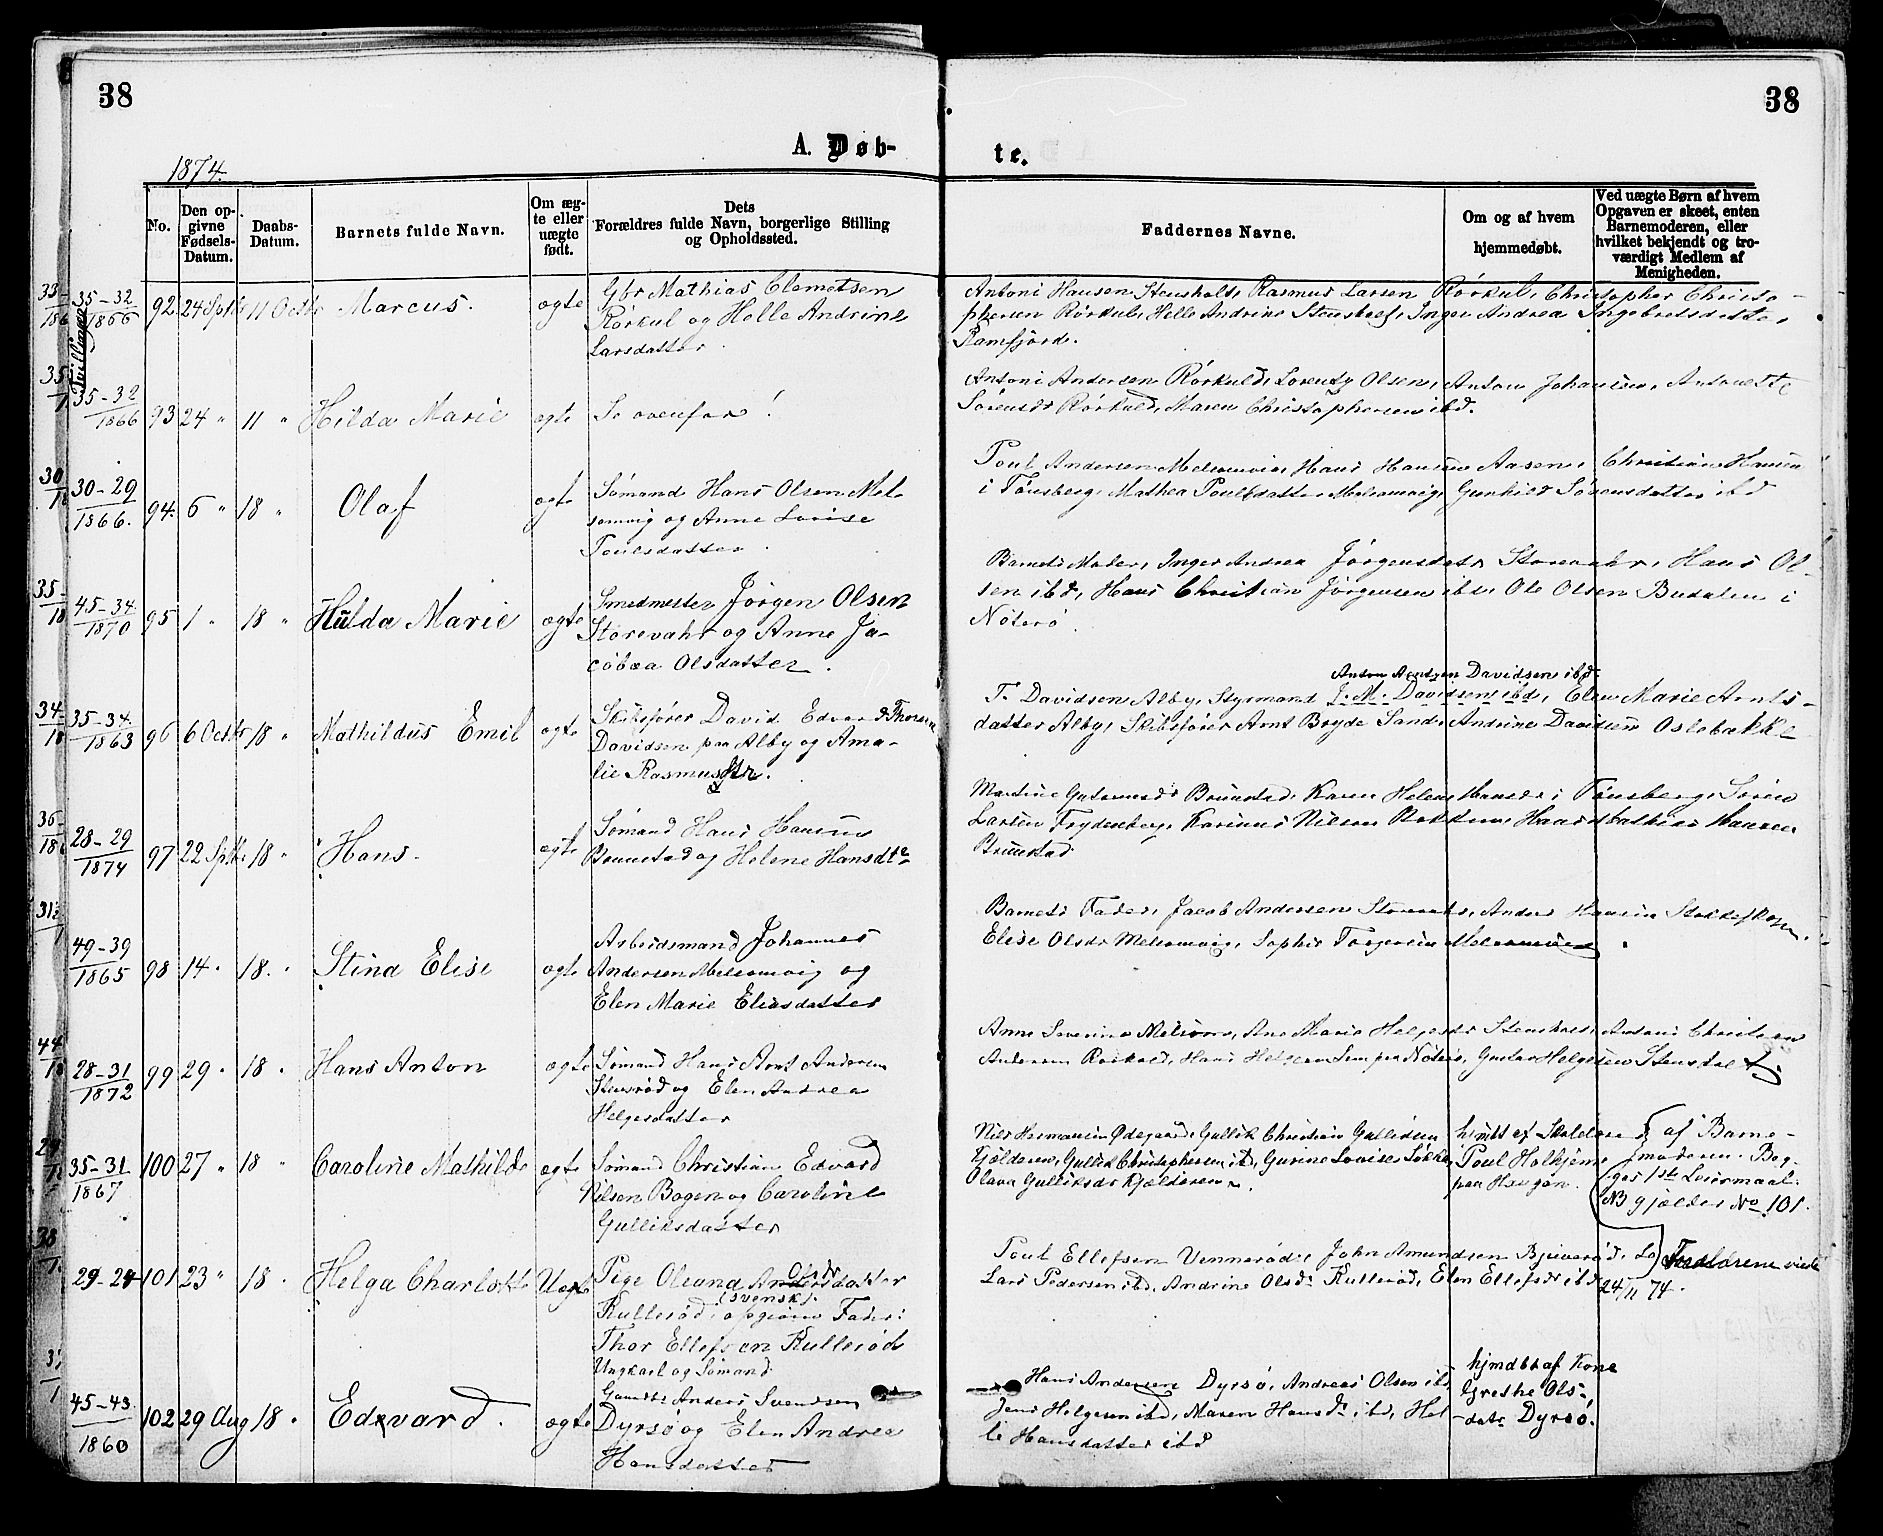 38
38
A. Døb-
te.
1874.
No.
Den op-
givne
Fødsels-
Datum.
Daabs-
Datum.
Barnets fulde Navn.
Om æg-
te eller
uægte
født.
Dets
Forældres fulde Navn, borgerlige Stilling
og Opholdssted.
Faddernes Navne.
Om og af hvem
hjemmedøbt.
Ved uægte Børn af hvem
Opgaven er skeet, enten
Barnemoderen, eller
hvilket bekjendt og tro-
værdigt Medlem af
Menigheden.
Tvillinger
35-32
1866
92 24 Sptbr 11 Octbr Marcus. ægte
Gbr Mathias Clemetsen
Rørkul og Helle Andrine
Larsdatter.
Antoni Hansen Stensholt, Rasmus Larsen Rørkul, Christopher Christo-
phersen Rørkul, Helle Andrine Inger Andrea Ingebretsdatter
Ramfjord.
35-32
1866
93 24 " 11 " Hilda Marie ægte Se ovenfor!
Antoni Andersen Rørkuld, Lorents Olsen, Anton Johansen, Antonette
Sørensdr Rørkuld, Maren Christophersen ibd.
30-29
1866.
94. 6 " 18 " Olaf ægte
Sømand Hans Olsen Mel-
somvig og Anne Lovise
Poulsdatter.
Poul Andersen Melsomvig, Hans Hansen Aasen, Christian Hansen
i Tønsberg, Mathea Poulsdatter Melsomvig, Gunhild Sørensdatter ibd
45-34
1870
95 1 " 18 " Hulda Marie ægte
Smedmester Jørgen Olsen
Storevahr og Anne Ja-
cobæa Olsdatter.
Barnets Moder, Inger Andrea Jørgensdatr Storevahr, Hans Ol-
sen ibd, Hans Christian Jørgensen ibd, Ole Olsen Budalen i
Nøterø.
35-34
1863
96 6 Octbr 18 " Mathildus Emil ægte
Skibsfører David Edvard Thorsen
Davidsen paa Alby og Ama-
lie Rasmusdtr.
Anton Davidsen ibd
T. Davidsen Alby, Styrmand J. M. Davidsen ibd, Elen Marie Arnts-
datter Alby, Skibsfører Arnt Bryde Sande, Andrine Davidsen Oslebakke
28-29
1874
97 22 Sptbr 18 " Hans. ægte
Sømand Hans Hansen
Brunstad og Helene Hansdtr
Martine Brunstad, Karen Helene Hansdr i Tønsberg, Søren
Larsen Frydenberg, Karinus Nilsen Hansen
Brunstad
49-39
1865
98 14 " 18. " Stina Elise ægte
Arbeidsmand Johannes
Andersen Melsomvig og
Elen Marie Eliasdatter
Barnets Fader, Jacob Andersen Anders Hansen
Elise Olsdr Melsomvig, Sophie Torgersen Melsomvig.
28-31
1872
99 29 " 18 " Hans Anton ægte
Sømand Hans Arnt Andersen
Stensrød og Elen Andrea
Helgesdatter
Anne Severine Melsom, Ane Marie Helgesdr Stensholt, Antoni Christian
Andersen Rørkold, Hans Helgesen Sem paa Nøterø, Gustav Helgesen Stensholt
35-31
1867
100 27 " 18 " Caroline Mathilde ægte
Sømand Christian Edvard
Nilsen Bogen og Caroline
Gulliksdatter
Nils Hermansen Ødegaard, Gullik Christian Gulliksen
Kjølderen, Gullik Christophersen ibd, Gurine Lovise
Olava Gulliksdr Kjølderen.
hjmdt af Skolelærer
Poul Holkjøm
paa Haugan.
af Barne-
moderen. Beg-
ges 1ste Leiermaal.
NB gjælder No 101.
29-24 101 23 " 18. Helga Charlotte Uægte
Pige Oleana Andersdatter
Olsdr
(svensk)
Kullerød, opgiven Fader:
Thor Ellefsen Kullerød
Ungkarl og Sømand
Poul Ellefsen Vennerød, John Amundsen
Lars Pedersen ibd, Andrine Olsdr Kullerød, Elen Ellefsdr ibd
Forældrene viede
24/11 74.
45-43
1860
102 29 Aug 18 " Edvard. ægte
Gaardbr Anders Svendsen
Dyrsø og Elen Andrea
Hansdatter
Hans Andersen Dyrsø, Andreas Olsen ibd
Jens Helgesen ibd, Maren Hansdr ibd, Hel-
le Hansdatter ibd
hjmdbt af Kone
Grethe Ols-
datr Dyrsø.